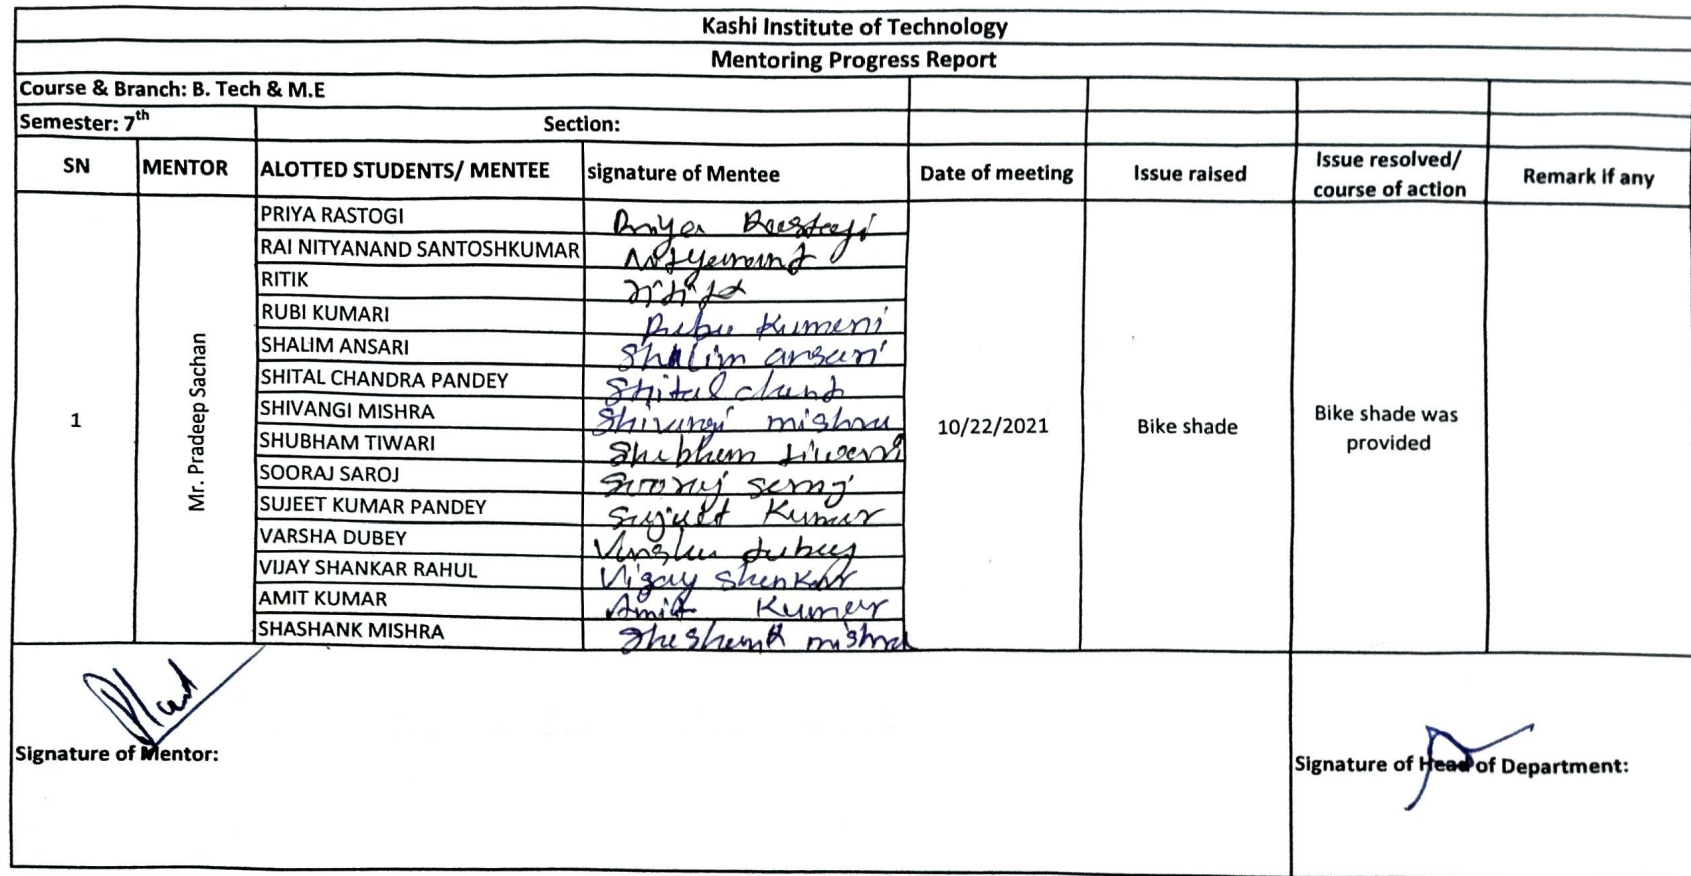 Kashi Institute of Technology
Mentoring Progress Report
Course & Branch: B. Tech & M.E
Semester: 7th Section:
SN MENTOR ALOTTED STUDENTS/ MENTEE signature of Mentee Date of meeting Issue raised Issue resolved/ course of action Remark if any
1 Mr. Pradeep Sachan 10/22/2021 Bike shade Bike shade was provided
PRIYA RASTOGI Priya Rastogi
RAI NITYANAND SANTOSHKUMAR Nityanand
RITIK
RUBI KUMARI Kumari
SHALIM ANSARI Shalim ansari
SHITAL CHANDRA PANDEY Shital chand
SHIVANGI MISHRA Shivangi mishra
SHUBHAM TIWARI Shubham tiwari
SOORAJ SAROJ Sooraj saroj
SUJEET KUMAR PANDEY Sujeet Kumar
VARSHA DUBEY Varsha dubey
VIJAY SHANKAR RAHUL Vijay Shankar
AMIT KUMAR Amit Kumar
SHASHANK MISHRA Shashank mishra
Signature of Mentor:
Signature of Head of Department: